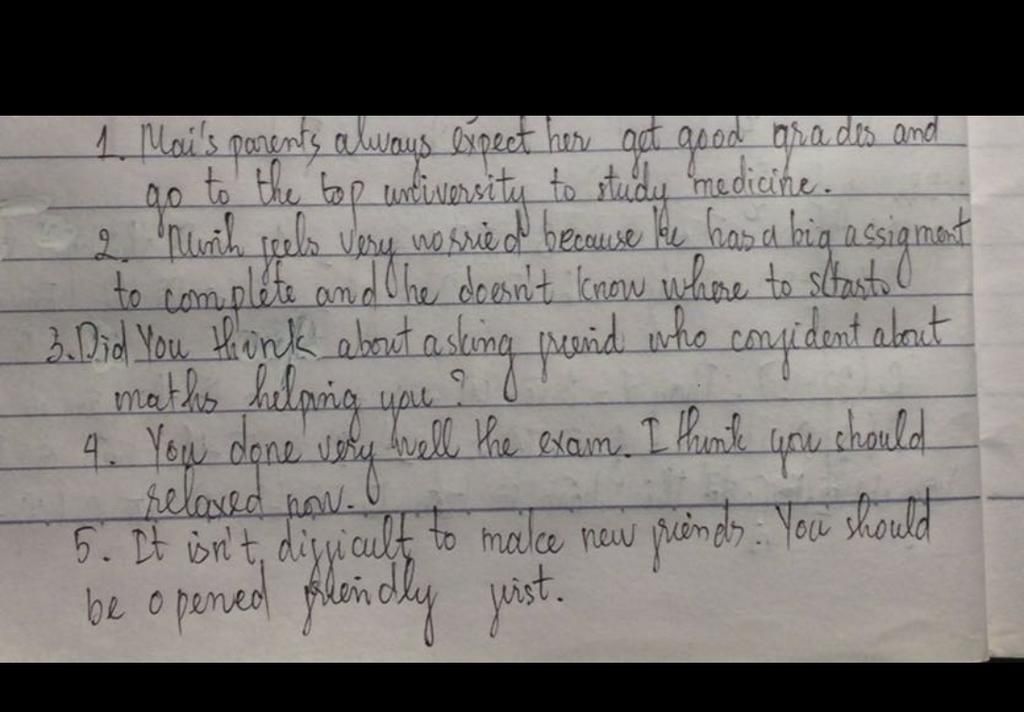 1. Mai's parents always expect her get good grades and
go to the top university to study medicine.
2. Minh feels very worried because he has a big assigment
to complete and he doesn't know where to start
3. Did You think about asking freind who confident about
maths helping you?
4. You done very well the exam. I think you should
relaxed now.
5. It isn't difficult to make new friends. You should
be opened friendly first.